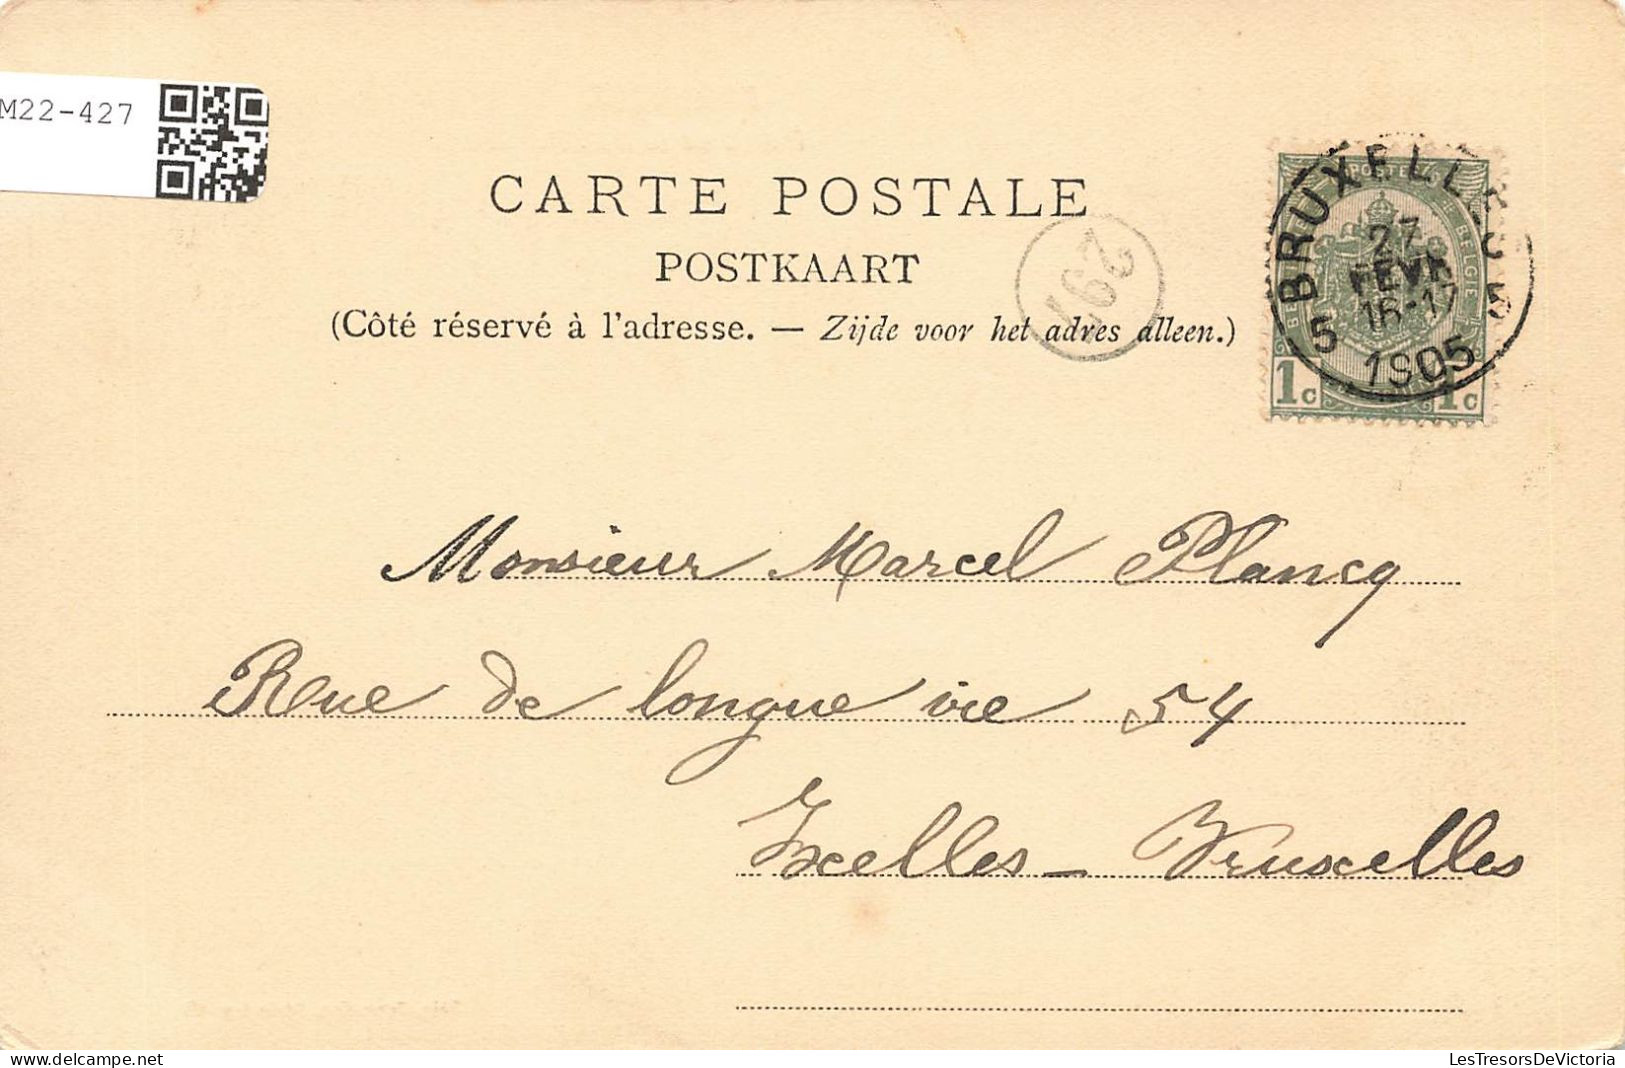 M22-427
CARTE POSTALE
POSTKAART
(Côté réservé à l'adresse. — Zijde voor het adres alleen.)
297
5 BRUXELLES 5
27
FEVR
16-17
1905
POSTES
BELGIE
1c 1c
Monsieur Marcel Plancq
Rue de longue vie 54
Ixelles - Bruxelles
delcampe.net
LesTresorsDeVictoria